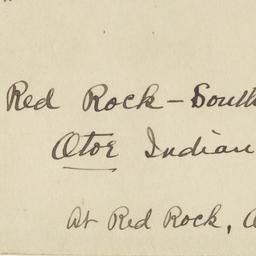 Red Rock - South
Otoe Indian
At Red Rock,